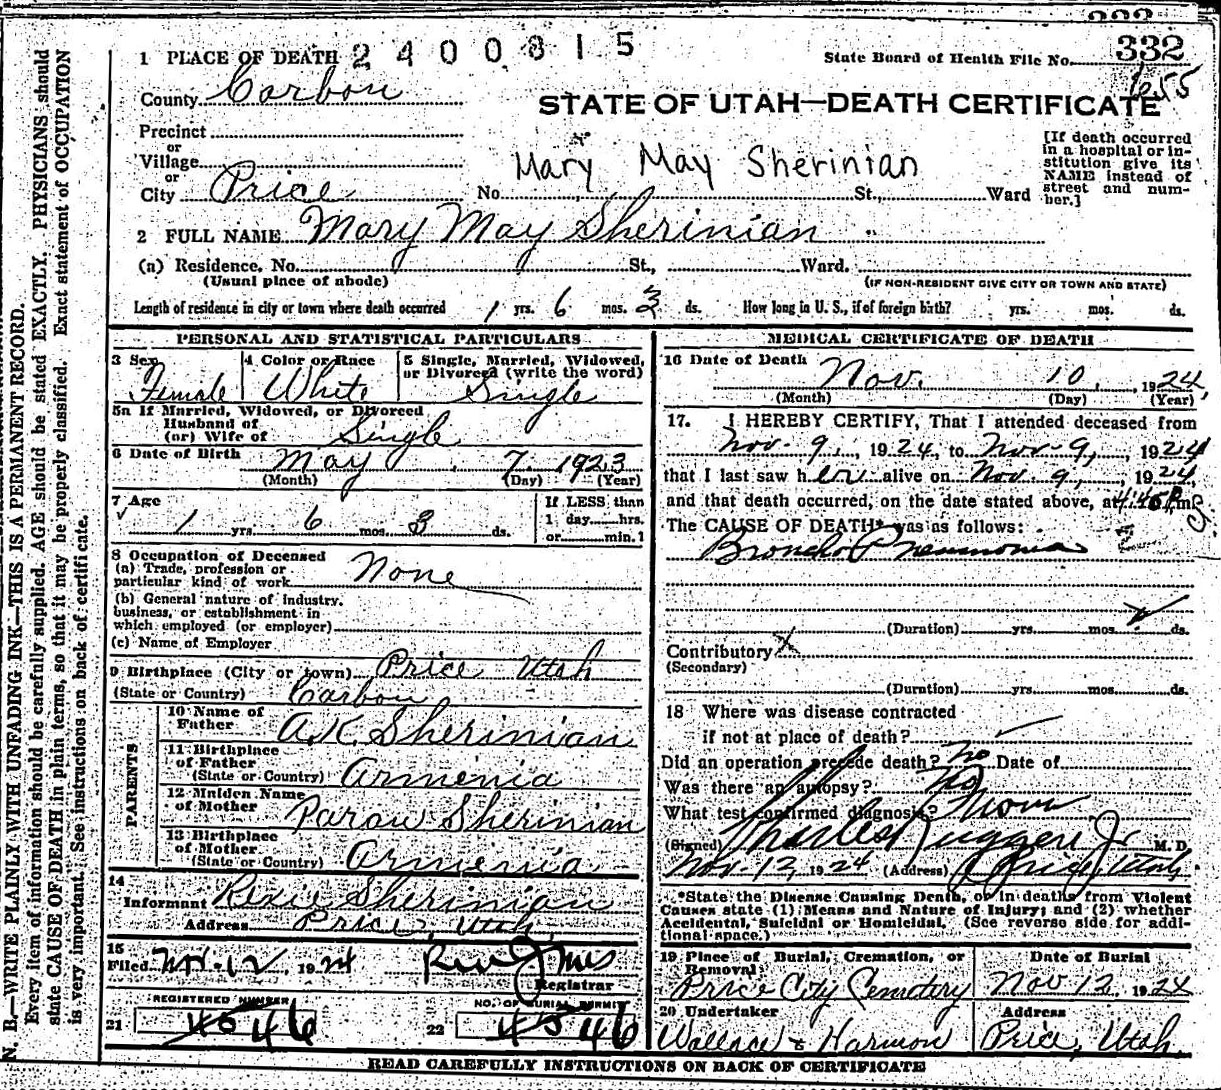 332
1 PLACE OF DEATH 2400815 State Board of Health File No. 332
655
County Carbon
STATE OF UTAH—DEATH CERTIFICATE
Precinct
or
Village
or
City Price No. St., Ward
Mary May Sherinian
[If death occurred
in a hospital or in-
stitution give its
NAME instead of
street and num-
ber.]
2 FULL NAME Mary May Sherinian
(a) Residence, No. St., Ward.
(Usual place of abode) (IF NON-RESIDENT GIVE CITY OR TOWN AND STATE)
Length of residence in city or town where death occurred 1 yrs. 6 mos. 3 ds. How long in U. S., if of foreign birth? yrs. mos. ds.
PERSONAL AND STATISTICAL PARTICULARS
3 Sex Female
4 Color or Race White
5 Single, Married, Widowed,
or Divorced (write the word)
Single
5a If Married, Widowed, or Divorced
Husband of
(or) Wife of Single
6 Date of Birth May 7 1923
(Month) (Day) (Year)
7 Age
1 yrs. 6 mos. 3 ds.
If LESS than
1 day......hrs.
or......min.?
8 Occupation of Deceased
(a) Trade, profession or
particular kind of work None
(b) General nature of industry,
business, or establishment in
which employed (or employer)
(c) Name of Employer
9 Birthplace (City or town) Price Utah
(State or Country) Carbon
PARENTS
10 Name of
Father A.K. Sherinian
11 Birthplace
of Father
(State or Country) Armenia
12 Maiden Name
of Mother Sherinian
13 Birthplace
of Mother
(State or Country) Armenia
14
Informant Rexie Sherinian
Address Price, Utah
15
Filed Nov-12, 1924
Registrar
REGISTERED NUMBER
21 46
NO. OF BURIAL PERMIT
22 46
MEDICAL CERTIFICATE OF DEATH
16 Date of Death Nov. 10, 1924,
(Month) (Day) (Year)
17. I HEREBY CERTIFY, That I attended deceased from
Nov-9, 1924, to Nov-9, 1924
that I last saw her alive on Nov-9, 1924,
and that death occurred, on the date stated above, at 4:45 P.m.
The CAUSE OF DEATH* was as follows:
Broncho Pneumonia
(Duration) yrs. mos. ds.
Contributory
(Secondary)
(Duration) yrs. mos. ds.
18 Where was disease contracted
if not at place of death?
Did an operation precede death? No Date of
Was there an autopsy? No
What test confirmed diagnosis? None
(Signed) Charles Ruggeri Jr M. D.
Nov-12, 1924 (Address) Price, Utah.
*State the Disease Causing Death, or in deaths from Violent
Causes state (1) Means and Nature of Injury; and (2) whether
Accidental, Suicidal or Homicidal. (See reverse side for addi-
tional space.)
19 Place of Burial, Cremation, or
Removal
Price City Cemetery
Date of Burial
Nov 12, 1924
20 Undertaker
Wallace & Harmon
Address
Price, Utah.
READ CAREFULLY INSTRUCTIONS ON BACK OF CERTIFICATE
N. B.—WRITE PLAINLY WITH UNFADING INK—THIS IS A PERMANENT RECORD.
Every item of information should be carefully supplied. AGE should be stated EXACTLY. PHYSICIANS should
state CAUSE OF DEATH in plain terms, so that it may be properly classified. Exact statement of OCCUPATION
is very important. See instructions on back of certificate.